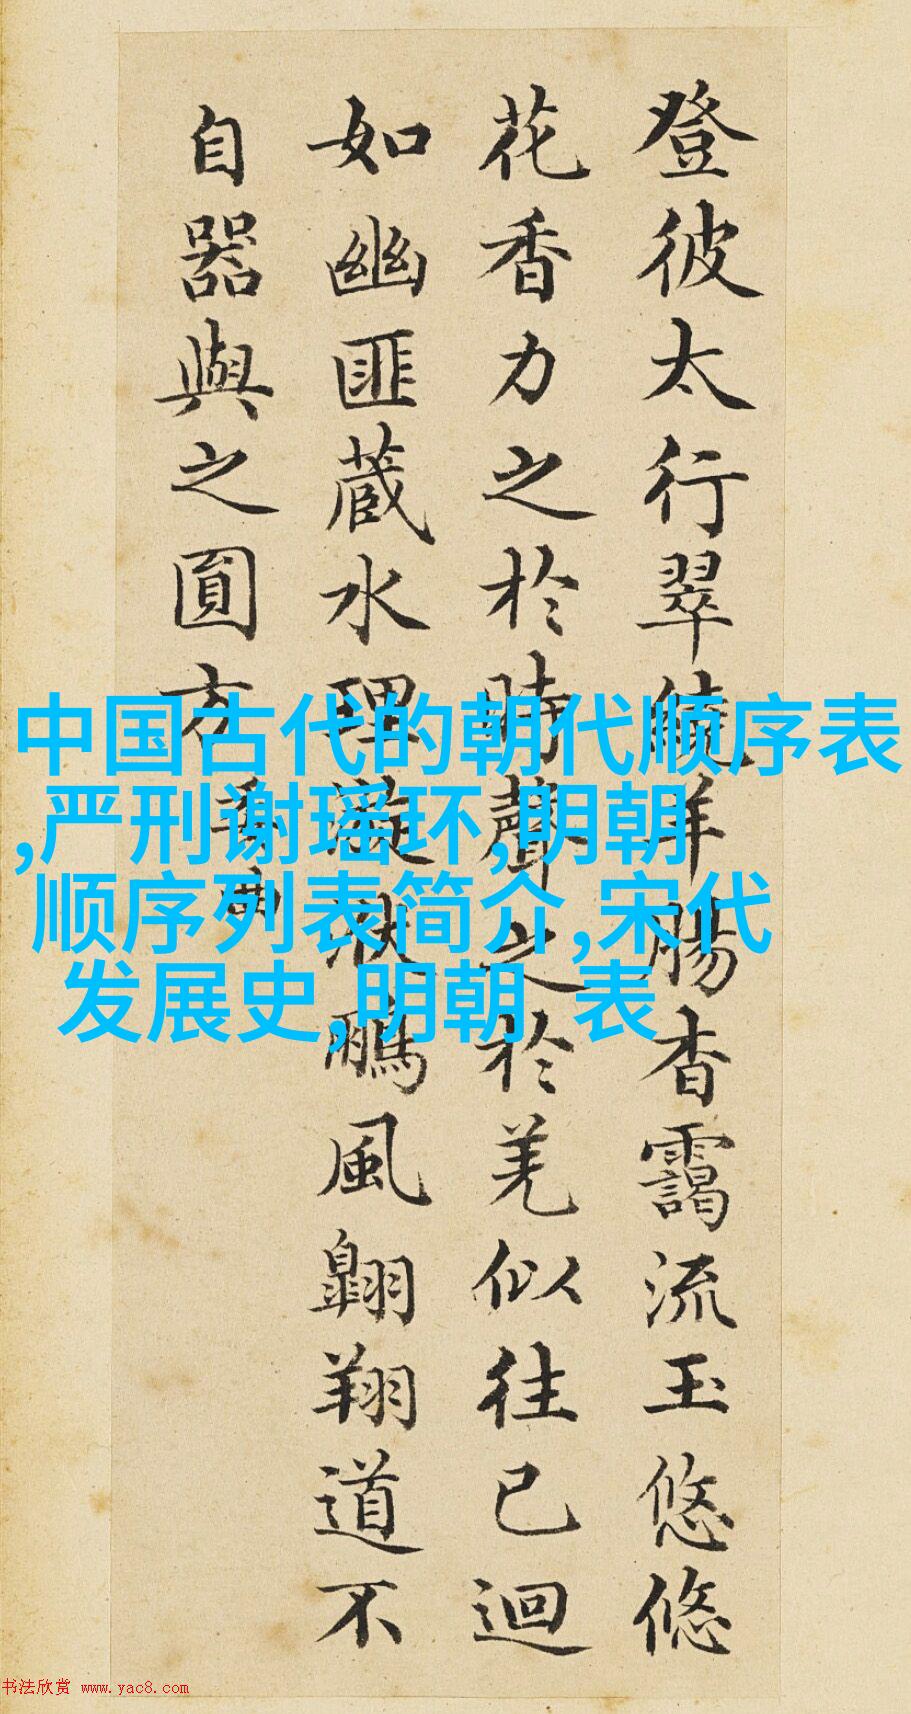 登彼太行翠繞羊腸杳靄流玉悠悠
花香力之於時聲之於羌似往已迴
如幽匪藏水理漩洑鵬風翺翔道不
自器與之圓方
委曲
中国古代的朝代顺序表
,严刑谢瑶环,明朝
顺序列表简介,宋代
发展史,明朝 表
书法欣赏 www.yac8.com